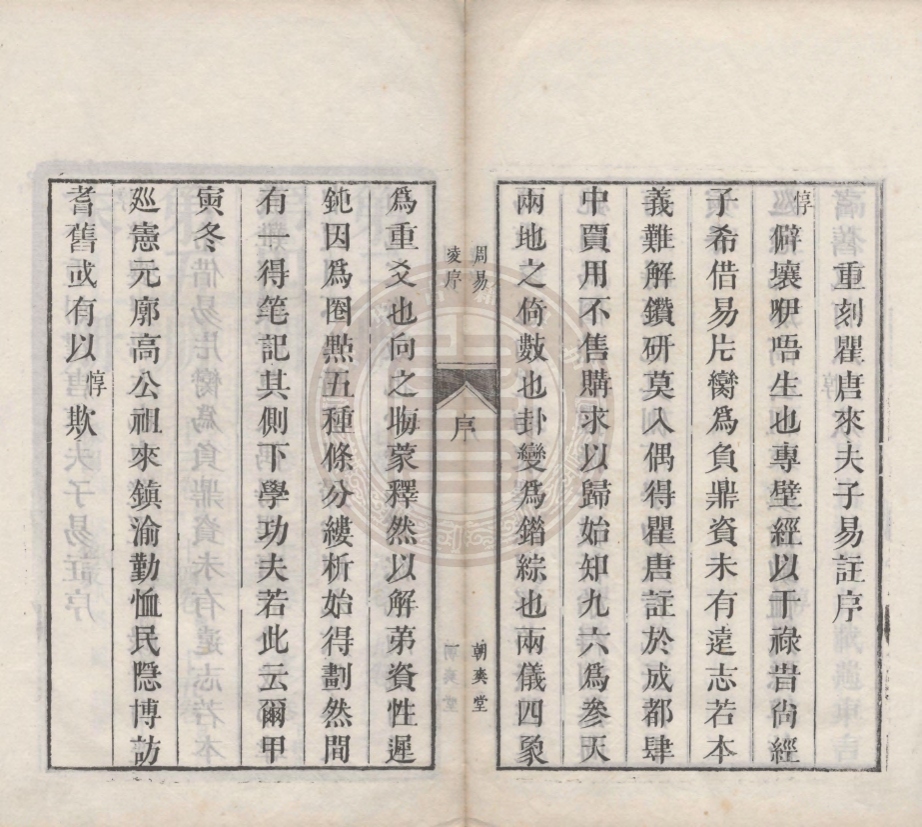 重刻瞿唐來夫子易註序
惇僻壤咿唔生也專壁經以干祿昔尙經
子希借易片臠爲負鼎資未有遠志若本
義難解鑽研莫入偶得瞿唐註於成都肆
中賈用不售購求以歸始知九六爲參天
兩地之倚數也卦變爲錯綜也兩儀四象
周易
凌序
序
朝爽堂
爲重爻也向之晦蒙釋然以解第資性遲
鈍因爲圈㸃五種條分縷析始得劃然間
有一得筆記其側下學功夫若此云爾甲
寅冬
廵憲元廓高公祖來鎮渝勤恤民隱博訪
耆舊或有以惇欺